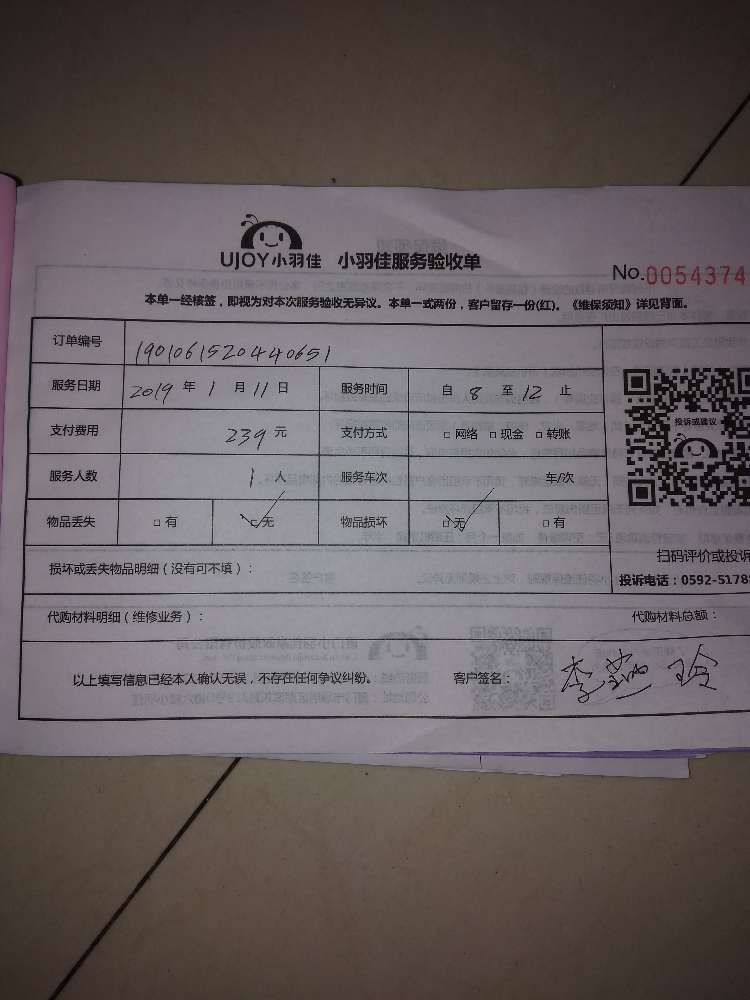 UJOY小羽佳 小羽佳服务验收单
No.0054374
本单一经核签，即视为对本次服务验收无异议。本单一式两份，客户留存一份(红)。《维保须知》详见背面。
订单编号 190106152044065​1
服务日期 2019 年 1 月 11 日 服务时间 自 8 至 12 止
支付费用 239 元 支付方式 □ 网络 □ 现金 □ 转账
服务人数 1 人 服务车次 车/次
物品丢失 □ 有 □ 无 物品损坏 □ 无 □ 有
损坏或丢失物品明细（没有可不填）：
投诉或建议
扫码评价或投诉
投诉电话：0592-5178
代购材料明细（维修业务）： 代购材料总额：
以上填写信息已经本人确认无误，不存在任何争议纠纷。 客户签名：